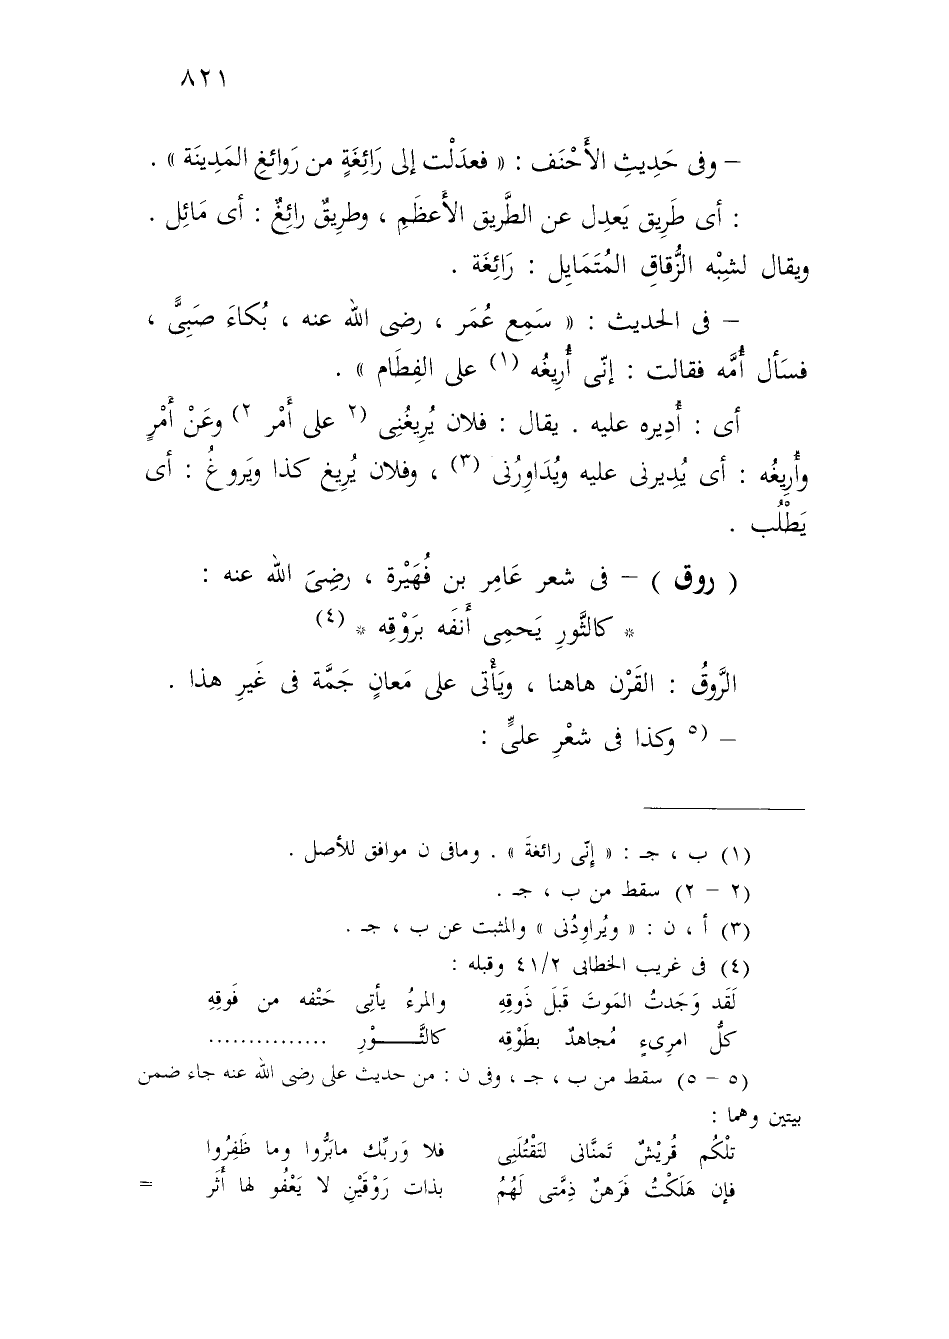 ٨٢١
– وفى حَدِيثِ الأَحْنَف : « فعدَلْت إلى رَائِغَةٍ من رَوائغِ المَدِينَة » .
: أى طَرِيق يَعدِل عن الطَّريق الأَعظَمِ ، وطريقٌ رائِغٌ : أى مَائِل .
ويقال لشِبْه الزُّقاقِ المُتَمَايِل : رَائِغَة .
– فى الحديث : « سَمِع عُمَر ، رضى الله عنه ، بُكاءَ صَبِىًّ ،
فسَأل أُمَّه فقالت : إنّى أُرِيغُه (١) على الفِطَام » .
أى : أُدِيره عليه . يقال : فلان يُرِيغُنِى (٢ على أَمْر ٢) وعَنْ أَمْرٍ
وأُرِيغُه : أى يُدِيرنى عليه ويُدَاوِرُنى (٣) ، وفلان يُرِيغ كذا ويَروغُ : أى
يَطْلُب .
( روق ) – فى شعر عَامِر بن فُهَيْرة ، رضِىَ الله عنه :
* كالثَّورِ يَحمِى أَنفَه بَرَوْقِه * (٤)
الرَّوقُ : القَرْن هاهنا ، ويَأْتى على مَعانٍ جَمَّة فى غَيرِ هذا .
– (٥ وكذا فى شعْرِ علىٍّ :
(١) ب ، جـ : « إنّى رائغةَ » . ومافى ن موافق للأصل .
(٢ – ٢) سقط من ب ، جـ .
(٣) أ ، ن : « ويُراوِدُنى » والمثبت عن ب ، جـ .
(٤) فى غريب الخطابى ٤١/٢ وقبله :
لَقَد وَجَدتُ المَوتَ قَبلَ ذَوقِهِ والمرءُ يأتِى حَتْفه من فَوقِهِ
كلُّ امرِىءٍ مُجاهدٌ بطَوْقِه كالثَّـــــوْرِ ...............
(٥ – ٥) سقط من ب ، جـ ، وفى ن : من حديث على رضى الله عنه جاء ضمن
بيتين وهما :
تلْكُم قُرَيْشٌ تَمنَّانى لتَقْتُلَنِى فلا وَربِّك مابَرُّوا وما ظَفِرُوا
فإن هَلَكْتُ فَرَهنٌ ذِمَّتى لَهُمُ بذات رَوْقَيْنِ لا يَعْفُو لها أَثَر =